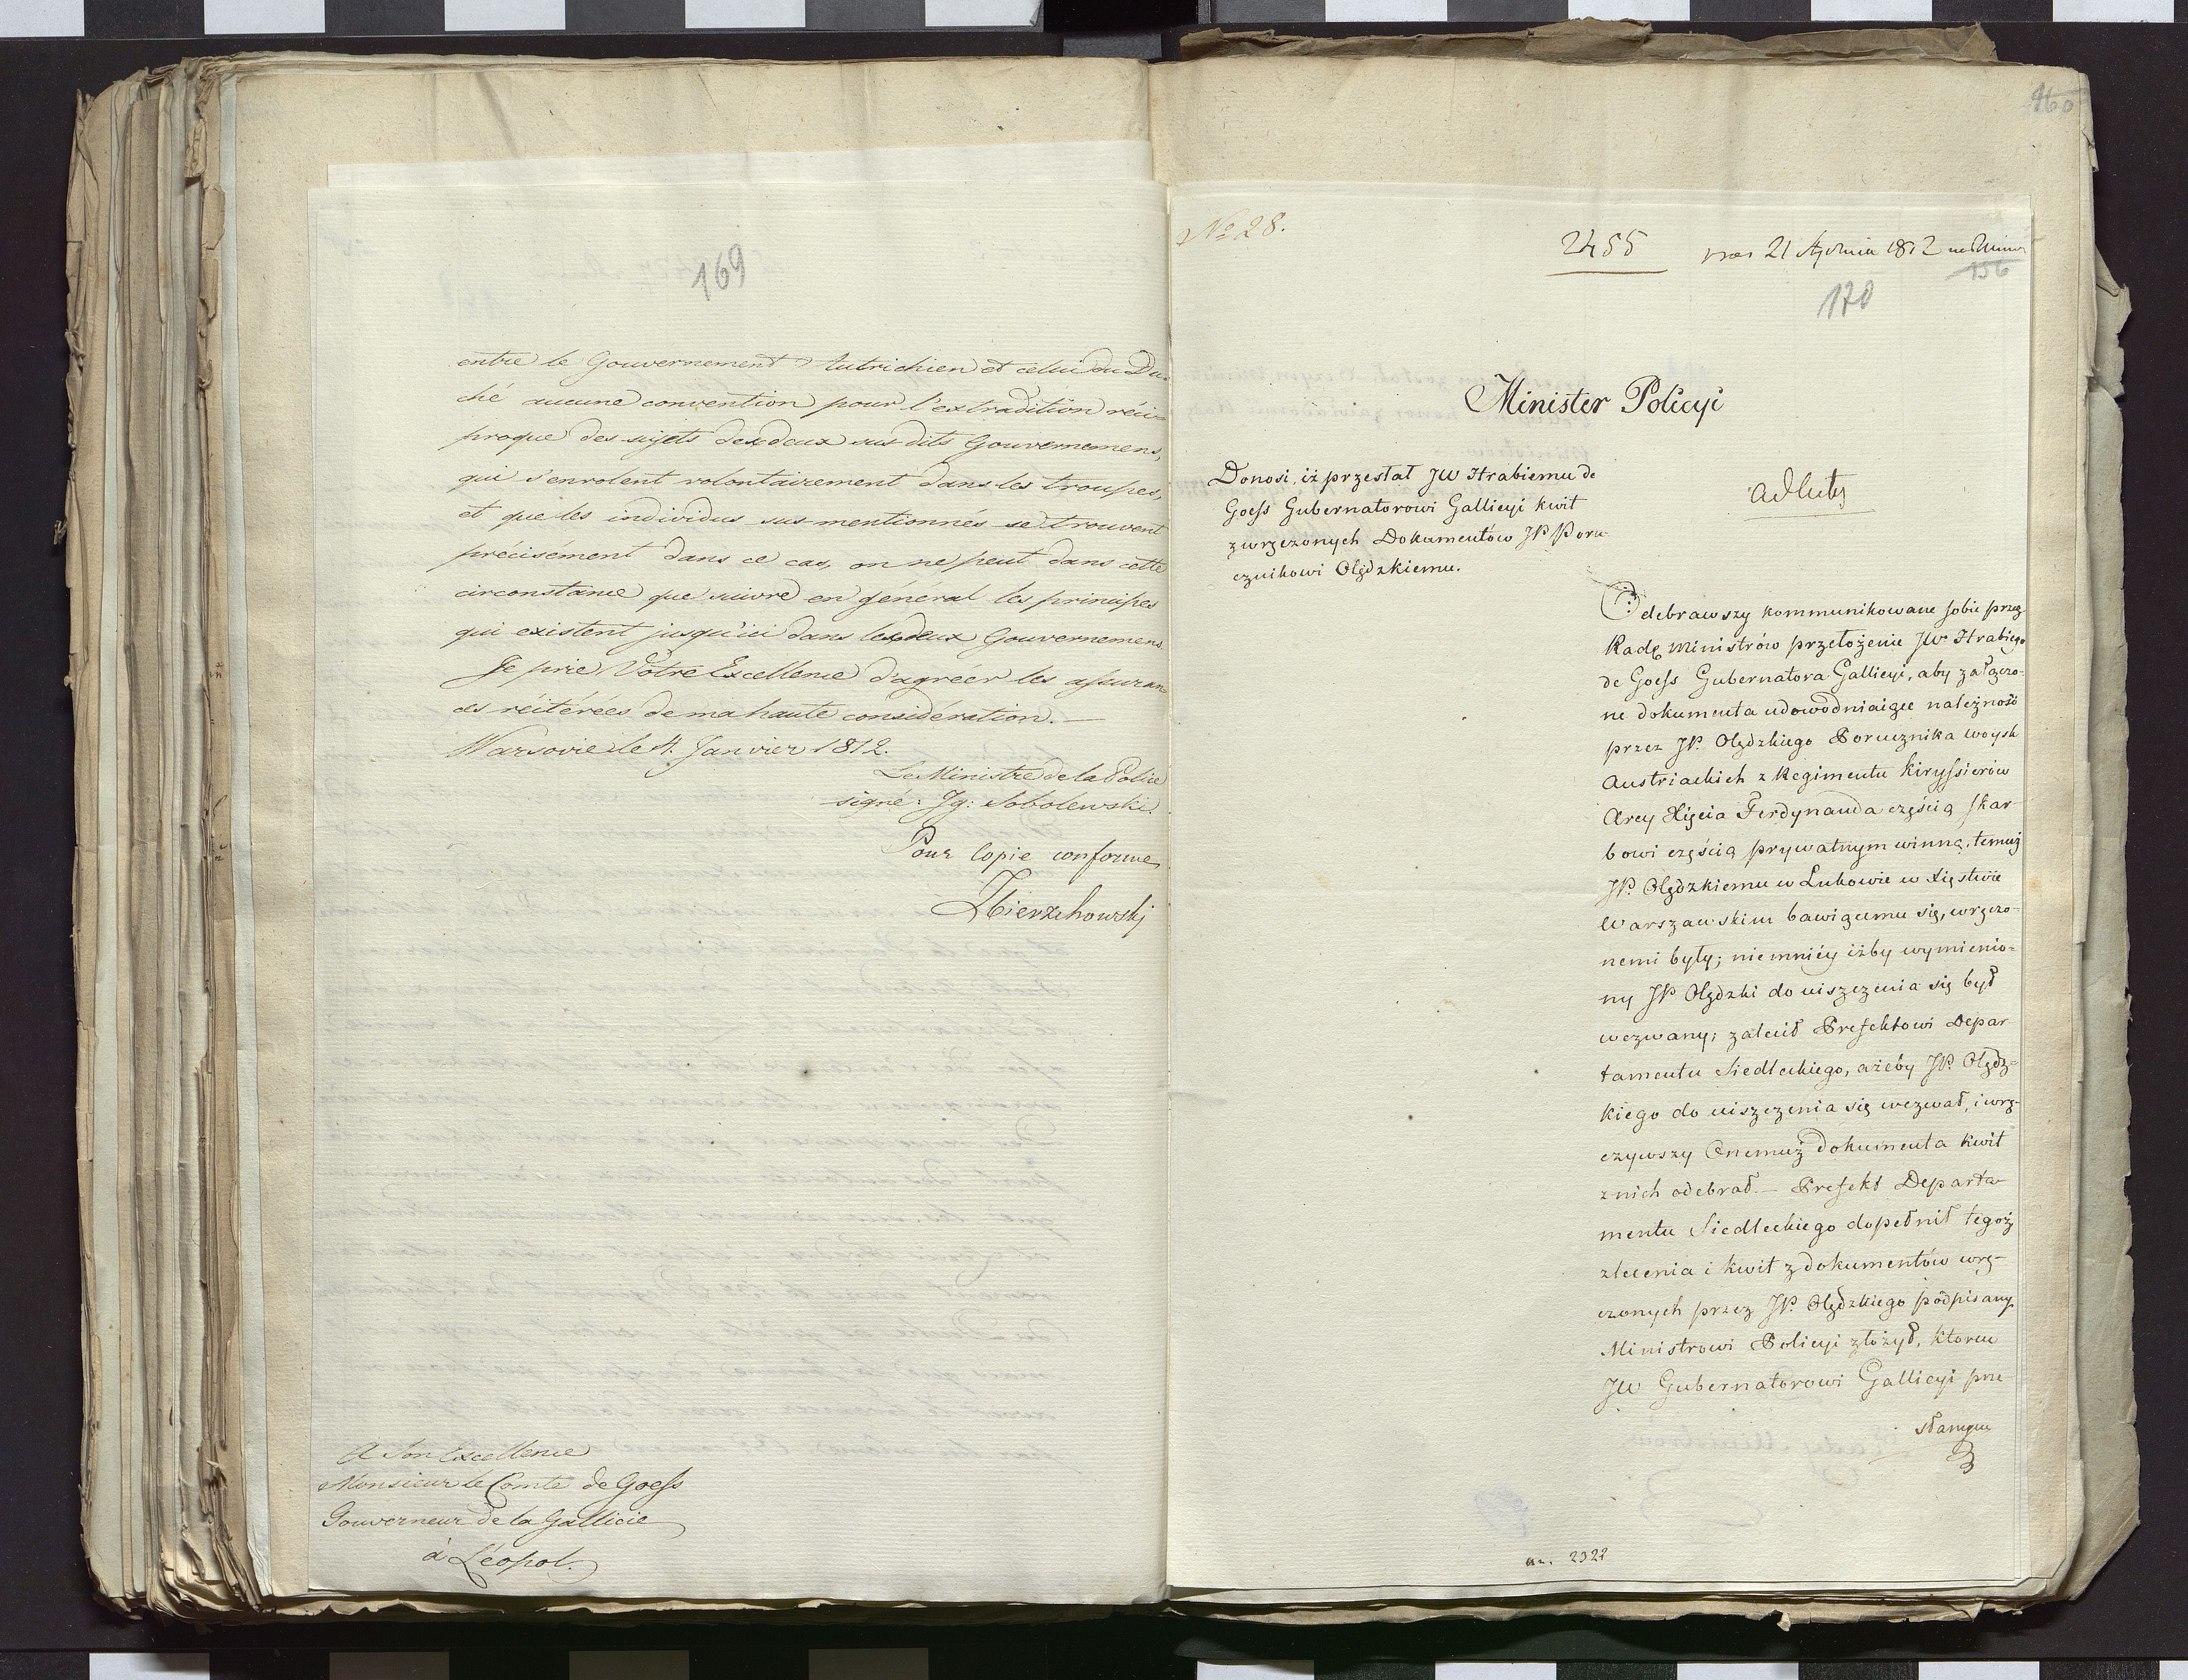 169
entre le Gouvernement Autrichien et celui du Du-
ché aucune convention pour l'extradition réci-
proque des sujets des deux sus dits Gouvernemens,
qui s'enrolent volontairement dans les troupes,
et que les individus sus-mentionnés se trouvent
précisément dans ce cas, on ne peut dans cette
circonstance que suivre en général les principes
qui existent jusqu'ici dans les deux Gouvernemens.
Je prie Votre Excellence d'agréer les assuran-
ces réitérées de ma haute considération. —
Varsovie le 4. Janvier 1812.
Le Ministre de la Police
signé: Ig: Sobolewski.
Pour Copie conforme
Zbierzchowski
A Son Excellence
Monsieur le Comte de Goess
Gouverneur de la Gallicie
à Léopol.
160
No 28.
2455
21 Stycznia 1812
156
170
Minister Policyi
Donosi, iż przesłał JW Hrabiemu de
Goess Gubernatorowi Gallicyi kwit
z wręczonych Dokumentów JP. Poru-
cznikowi Olędzkiemu.
Odebrawszy kommunikowane sobie przez
Radę Ministrów przełożenie JW Hrabiego
de Goess Gubernatora Gallicyi, aby załączo-
ne dokumenta udowodniaiące należność
przez JP. Olędzkiego Porucznika woysk
Austriackich z Regimentu Kiryssierów
Arcy Xięcia Ferdynanda częścią skar-
bowi częścią prywatnym winną, temuż
JP. Olędzkiemu w Łukowie w Xięstwie
Warszawskim bawiącemu się, wręczo-
nemi były; niemniéy iżby wymienio-
ny JP. Olędzki do uiszczenia się był
wezwany; zalecił Prefektowi Depar
tamentu Siedleckiego, ażeby JP. Olędz-
kiego do uiszczenia się wezwał, i wrę-
czywszy Onemuż dokumenta kwit
z nich odebrał. — Prefekt Departa-
mentu Siedleckiego dopełnił tegoż
zlecenia i kwit z dokumentów wrę-
czonych przez JP. Olędzkiego podpisany
Ministrowi Policyi złożył, który
JW Gubernatorowi Gallicyi prze
słanym
2322